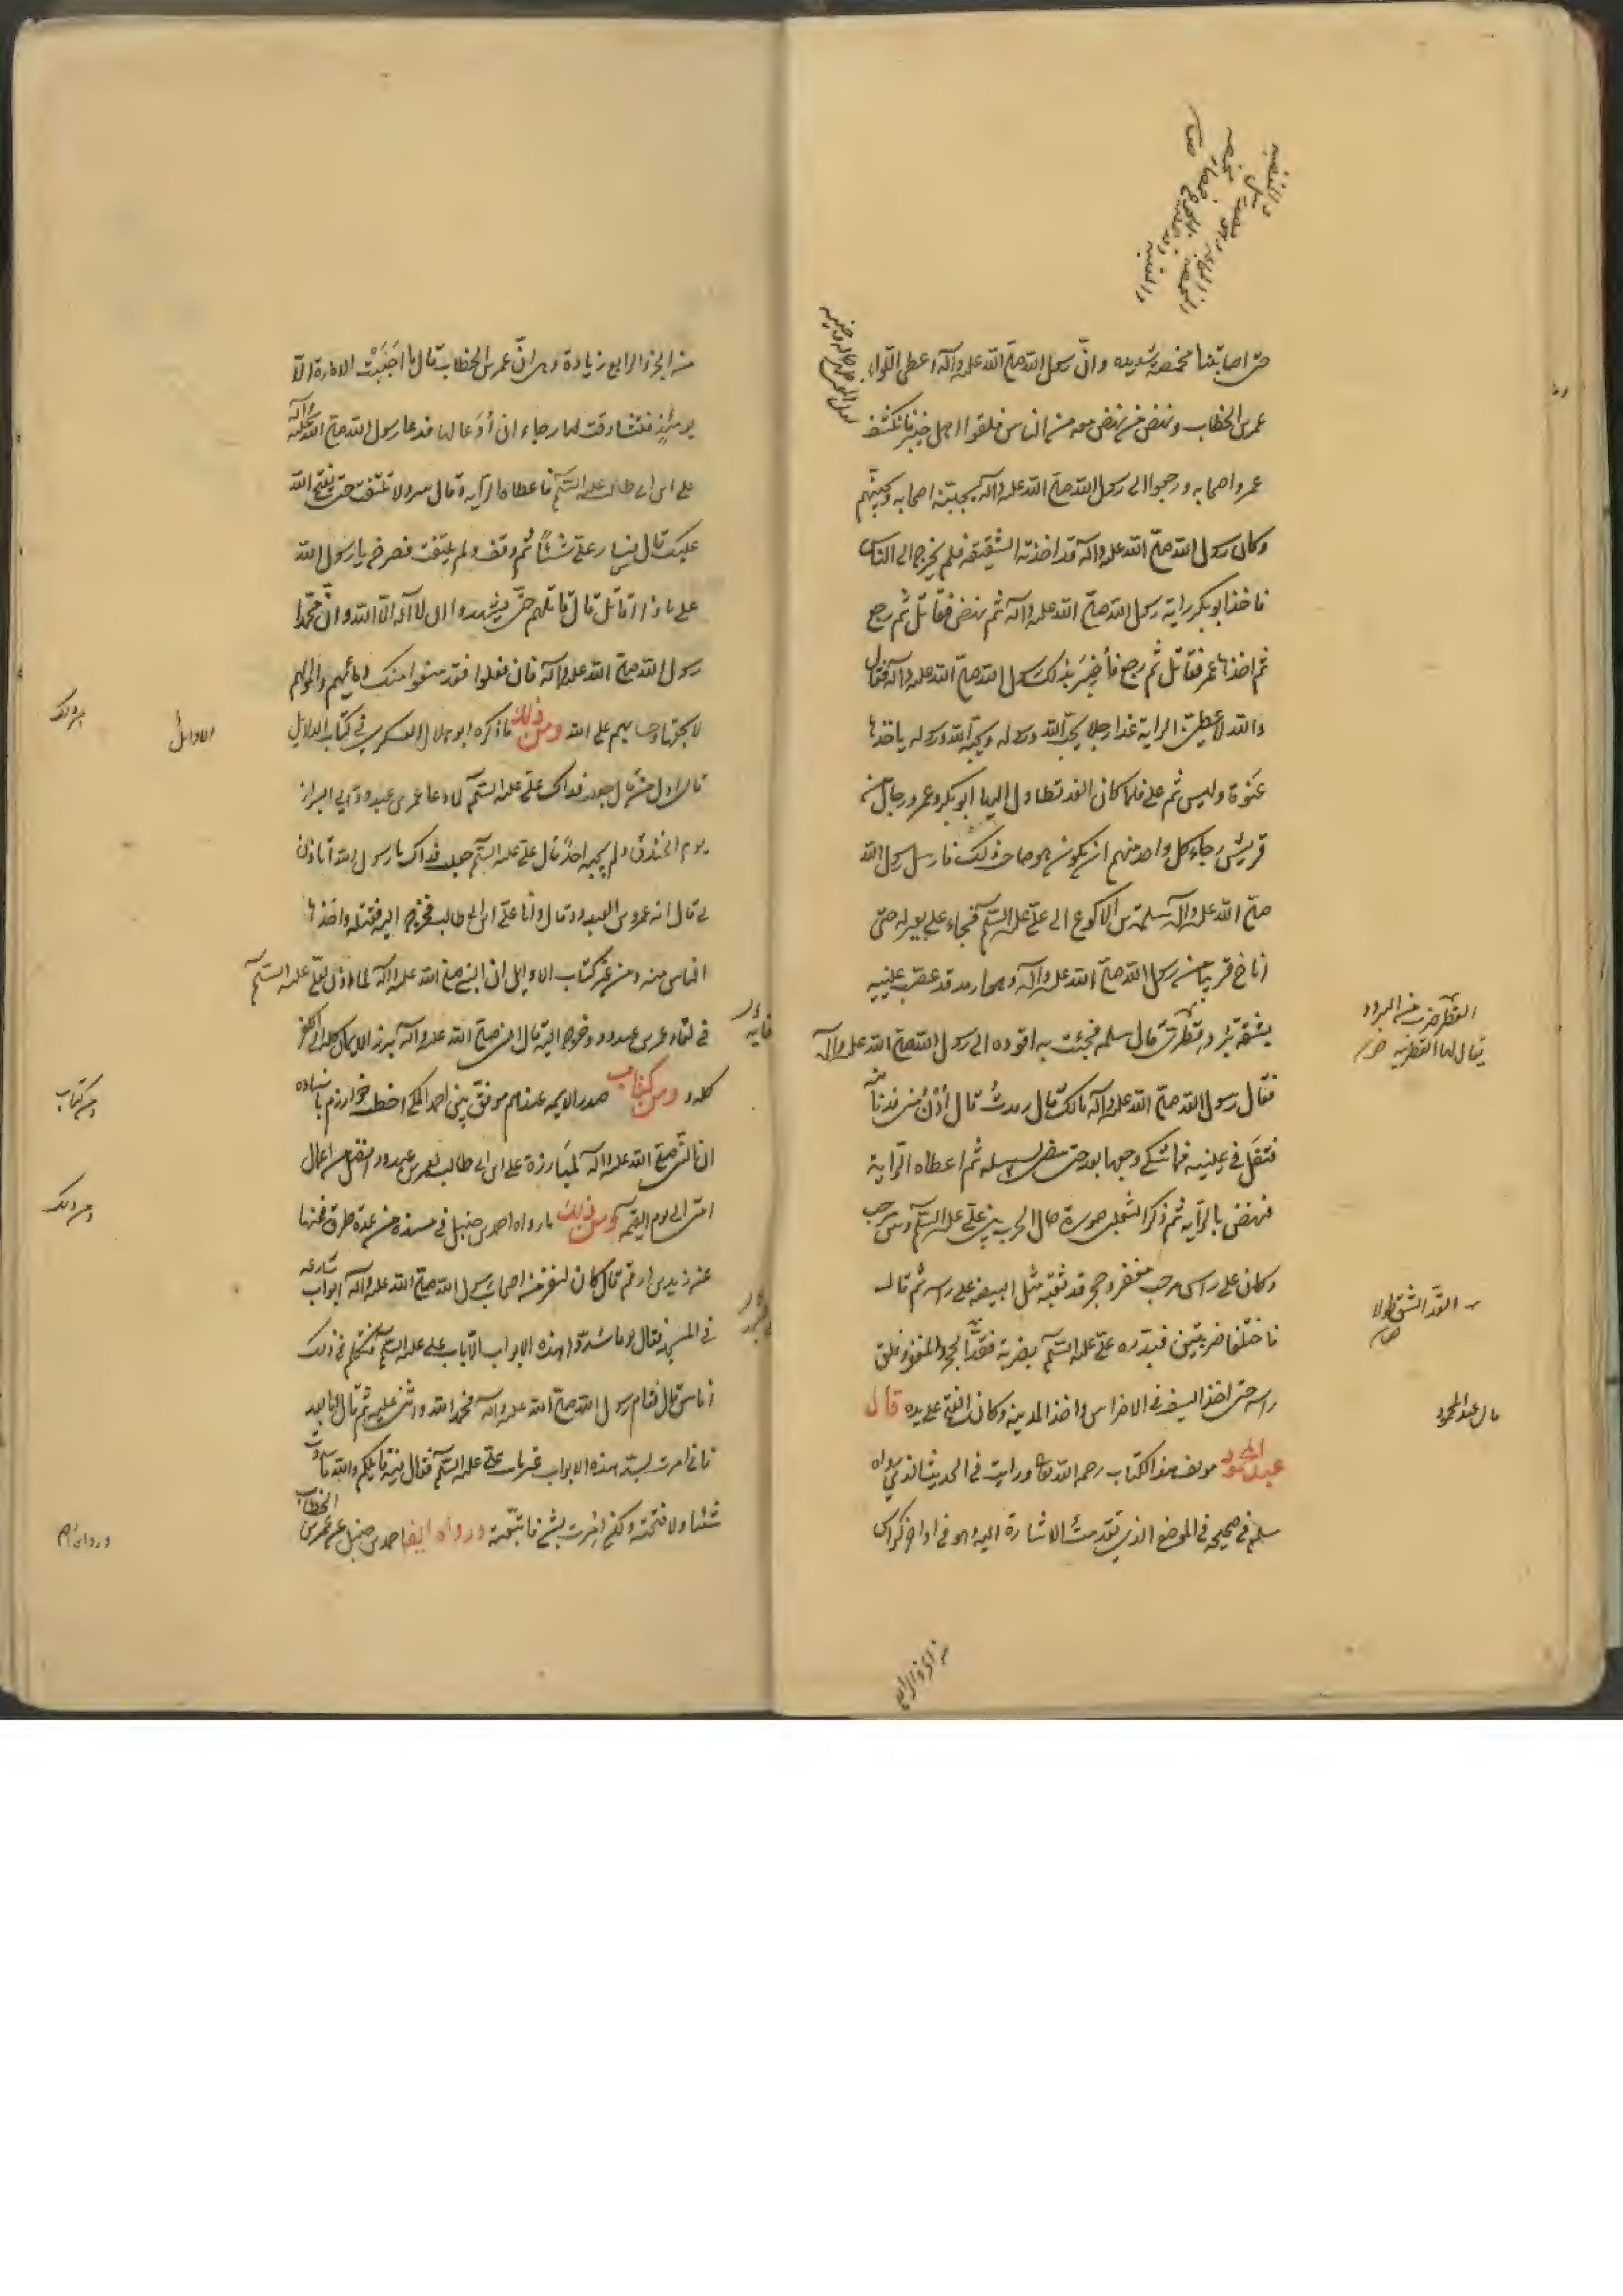 حتى اصابتنا مخمصة شديده وانّ رسول الله صلى الله عليه وآله اعطى اللواء
عمر بن الخطاب ونهض من نهض معه من الناس فلقوا اهل خيبر فانكشف
عمر واصحابه ورجعوا الى رسول الله صلى الله عليه وآله يجبنه اصحابه ويجبنهم
وكان رسول الله صلى الله عليه وآله قد اخذته الشقيقة فلم يخرج الى الناس
فاخذ ابو بكر راية رسول الله صلى الله عليه وآله ثم نهض فقاتل ثم رجع
ثم اخذها عمر فقاتل ثم رجع فأُخبِرَ بذلك رسول الله صلى الله عليه وآله فقال
والله لاعطين الراية غدا رجلا يحبّ الله ورسوله ويحبّه الله ورسوله ياخذها
عَنْوَة وليس ثم علي فلما كان الغد تطاول اليها ابو بكر وعمر ورجال من
قريش رجاء كل واحد منهم ان يكون هو صاحب ذلك فارسل رسول الله
صلى الله عليه وآله سلمة بن الاكوع الى عليّ عليه السلم فجاء على بعير له حتى
اناخ قريبا من رسول الله صلى الله عليه وآله وهو ارمد قد عصب عينيه
بشقة برد قطري قال سلمه فجئت به اقوده الى رسول الله صلى الله عليه وآله
فقال رسول الله صلى الله عليه وآله مالك قال رمدتُ قال اُدْنُ مني فدنا منه
فتفل في عينيه فما شكى وجعهما بعد حتى مضى لسبيله ثم اعطاه الراية
فنهض بالراية ثم ذكر الثعلبي صورة حال الحرب بين عليّ عليه السلم وبين مرحب
وكان على راس مرحب مغفر وحجر قد ثقبه مثل البيضه على راسه ثم قال
فاختلفا ضربتين فبدره عليّ عليه السلم بضربة فقدّ الحجر والمغفر وفلق
راسه حتى اخذ السيف في الاضراس واخذ المدينة وكان الفتح على يده قال
عبد المحمود مولف هذا الكتاب رحمه الله تعالى ورايت في الحديث الذي رواه
مسلم في صحيحه في الموضع الذي تقدمت الاشارة اليه وهو في اواخر كراس
القطر ضرب من البرود
يقال لها القطرية
القدّ الشق طولا
قال عبد المحمود
من الجزو الرابع زيادة وهى انّ عمر بن الخطاب قال ما احْبَبْت الامارة الّا
يومئذٍ فتشاوقت لها رجاء ان اُدْعا لها فدعا رسول الله صلى الله عليه وآله
علي بن ابى طالب عليه السلم فاعطاه الراية وقال سر ولا تلتفت حتى يفتح الله
عليك قال فسار عليّ شيئًا ثم وقف ولم يلتفت فصرخ يا رسول الله
على ماذا اقاتل قال قاتلهم حتى يشهدوا ان لا اله الّا الله وانّ محمّدا
رسول الله صلى الله عليه وآله فان فعلوا فقد منعوا منك دمائهم واموالهم
الا بحقها وحسابهم على الله ومن ذلك ما ذكره ابو هلال العسكري في كتاب الاوايل
قال اول من قال جعلت فداك عليّ عليه السلم لما دعا عمرو بن عبد ود الى البراز
يوم الخندق ولم يجبه احدٌ قال عليّ عليه السلم جعلت فداك يا رسول الله اتاذن
لي قال انه عمرو بن عبد ود قال وانا عليّ بن ابى طالب فخرج اليه فقتله واخذها
الناس منه ومن غير كتاب الاوايل ان النبي صلى الله عليه وآله لما اذن لعليّ عليه السلم
في لقاء عمرو بن عبد ود وخرج اليه قال النبي صلى الله عليه وآله برز الايمان كله الى الكفر
كله ومن كتاب صدر الايمه عندهم موفق بن احمد المكي اخطب خوارزم باسناده
ان النبي صلى الله عليه وآله لمبارزة علي بن ابى طالب لعمرو بن عبد ود افضل من اعمال
امتي الى يوم القيمة ومن ذلك ما رواه احمد بن حنبل في مسنده من عدة طرق فمنها
عن زيد بن ارقم قال كان لنفر من اصحاب رسول الله صلى الله عليه وآله ابواب شارعه
في المسجد فقال يوما سُدّوا هذه الابواب الّا باب علي عليه السلم فتكلم في ذلك
اناس قال فقام رسول الله صلى الله عليه وآله فحمد الله واثنى عليه ثم قال اما بعد
فاني امرت بسد هذه الابواب غير باب عليّ عليه السلم فقال فيه قايلكم والله ما سددت
شيئا ولا فتحته ولكني امرت بشئ فاتبعته ورواه ايضا احمد بن حنبل عن عمر بن الخطاب
الاوائل
ومن ذلك
ومن كتاب
ومن ذلك